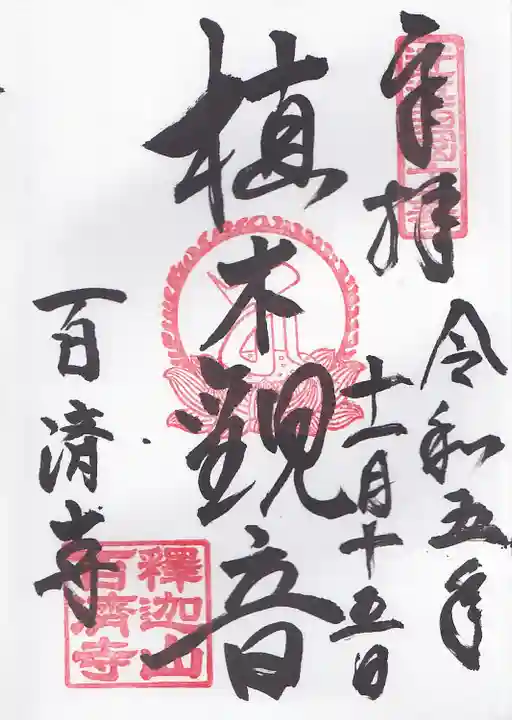 奉拝
令和五年
十一月十五日
植木観音
百済寺
釋迦山
百濟寺